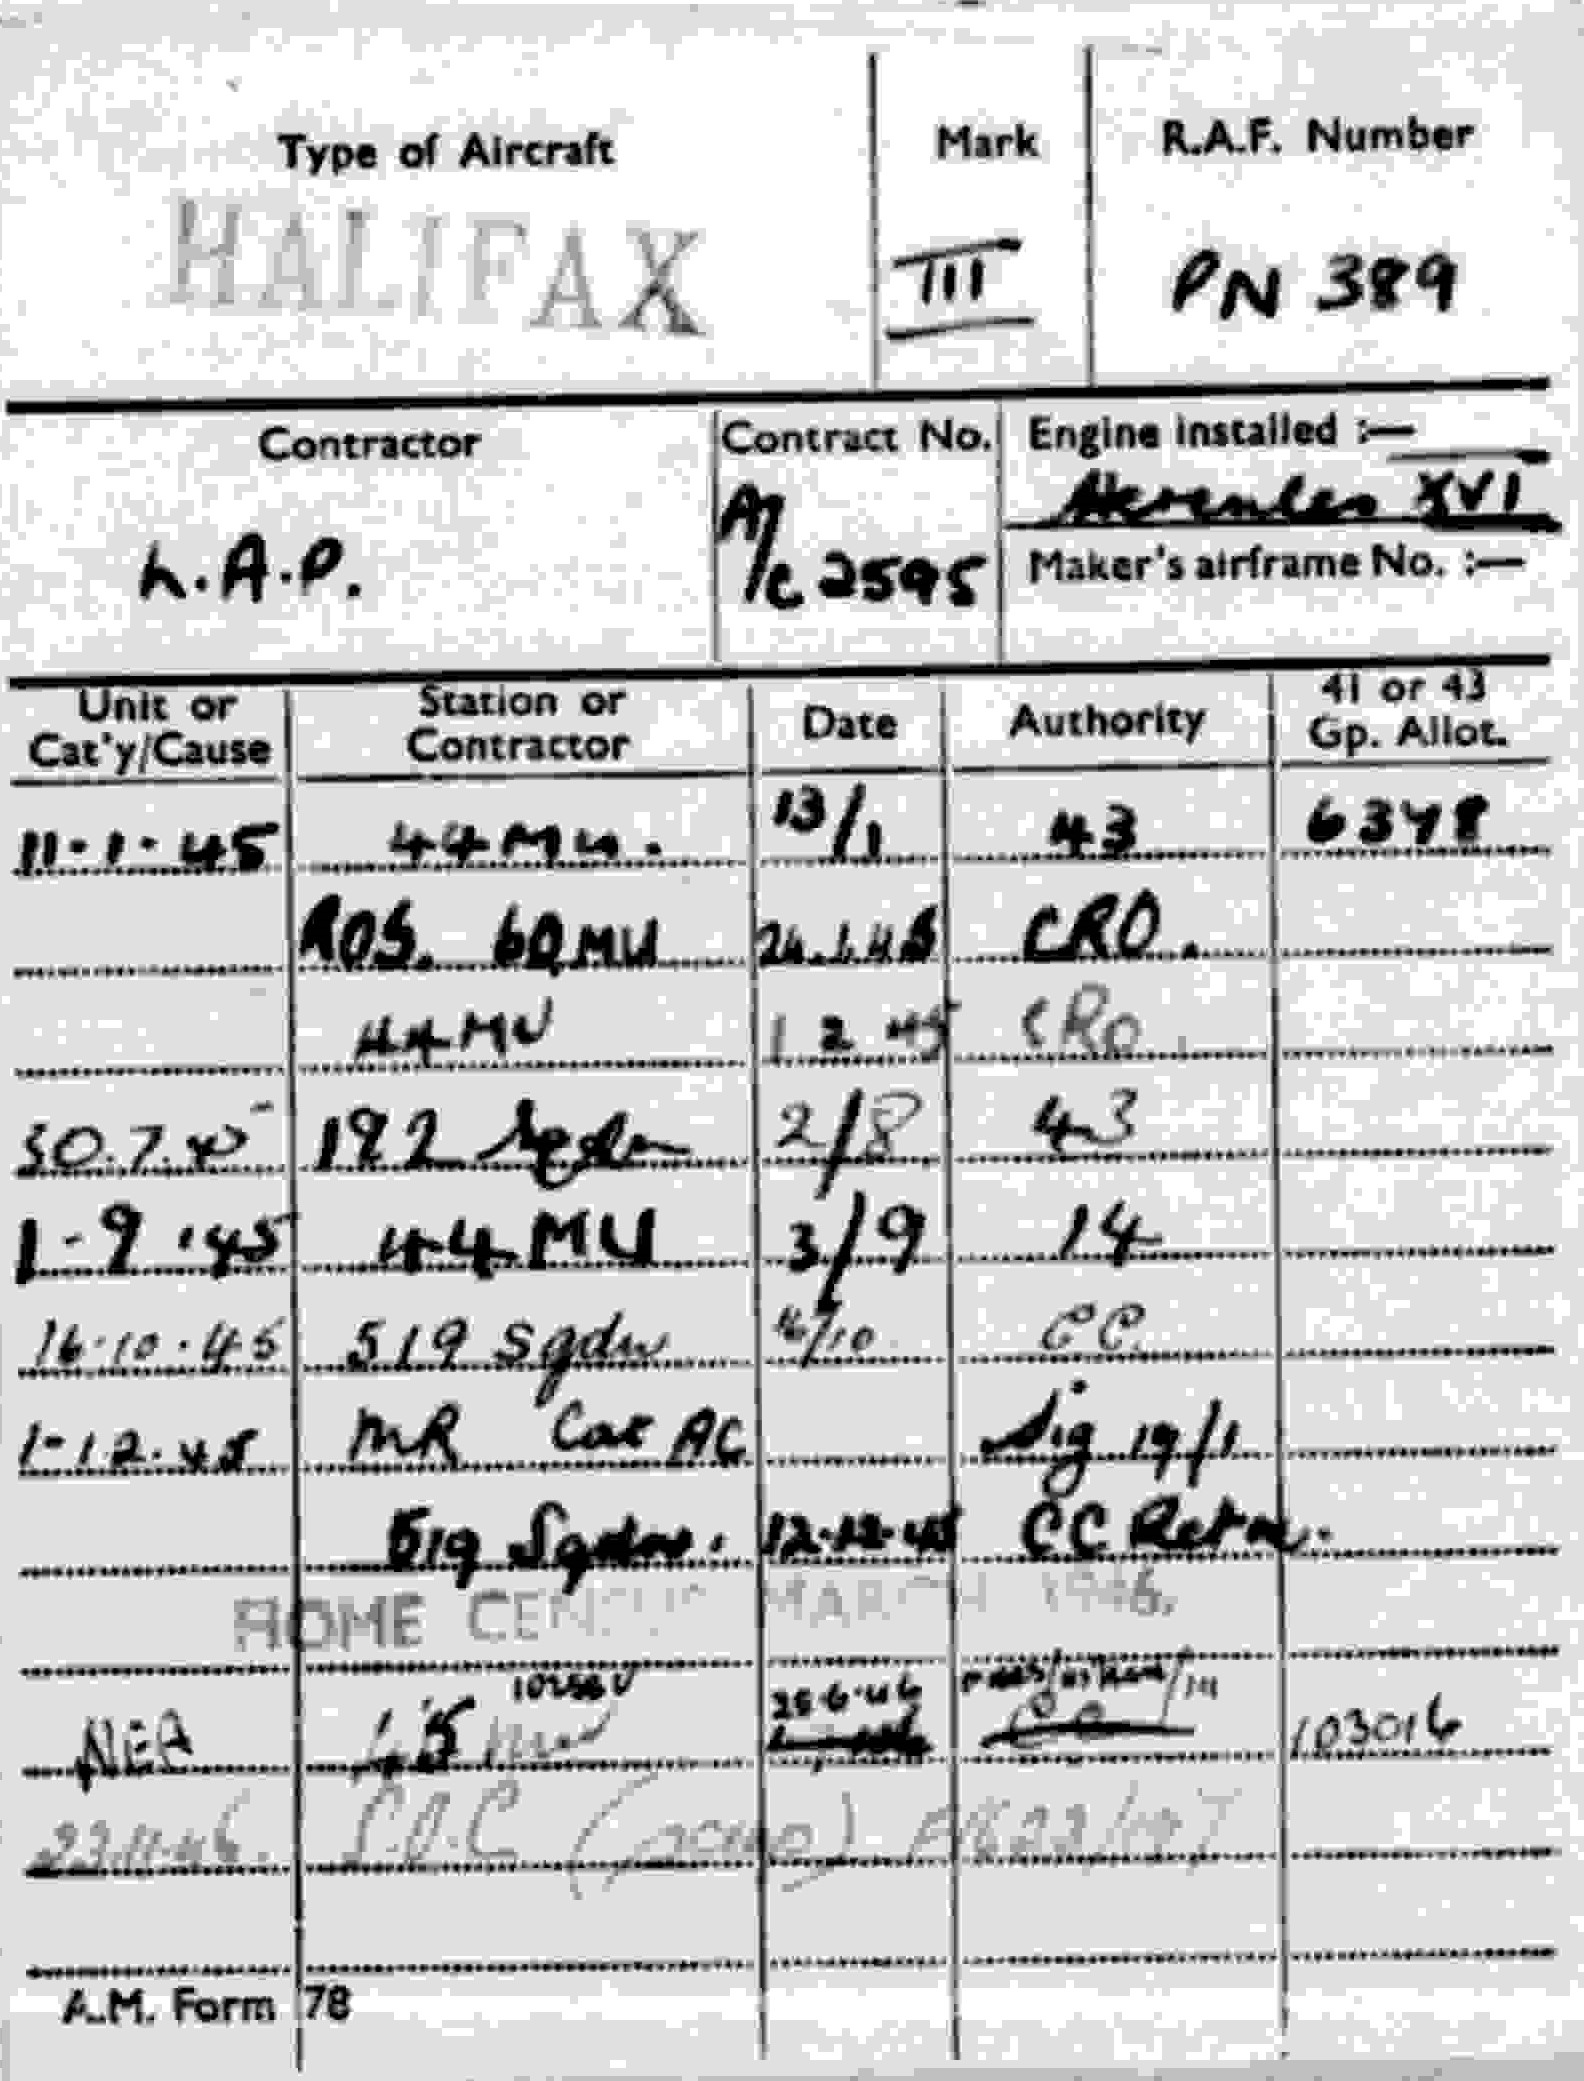 Type of Aircraft Mark R.A.F. Number
HALIFAX III PN 389
Contractor Contract No. Engine installed :—
Hercules XVI
L.A.P. A/c 2595 Maker's airframe No. :—
Unit or Cat'y/Cause Station or Contractor Date Authority 41 or 43 Gp. Allot.
11.1.45 44 MU. 13/1 43
ROS. 60 MU 26.1.45 CRO.
44 MU 1 2 45 CRO
30.7.45 192 Sqdn 2/8 43
1-9.45 44 MU 3/9 14
16.10.45 519 Sqdn 16/10 CC.
1-12.45 MR Cat AC Sig 19/1
519 Sqdn. 12.12.45 CC Retn.
HOME CENSUS MARCH 1946.
25.6.46
NEA 45 MU 103016
23.11.46. S.O.C
A.M. Form 78